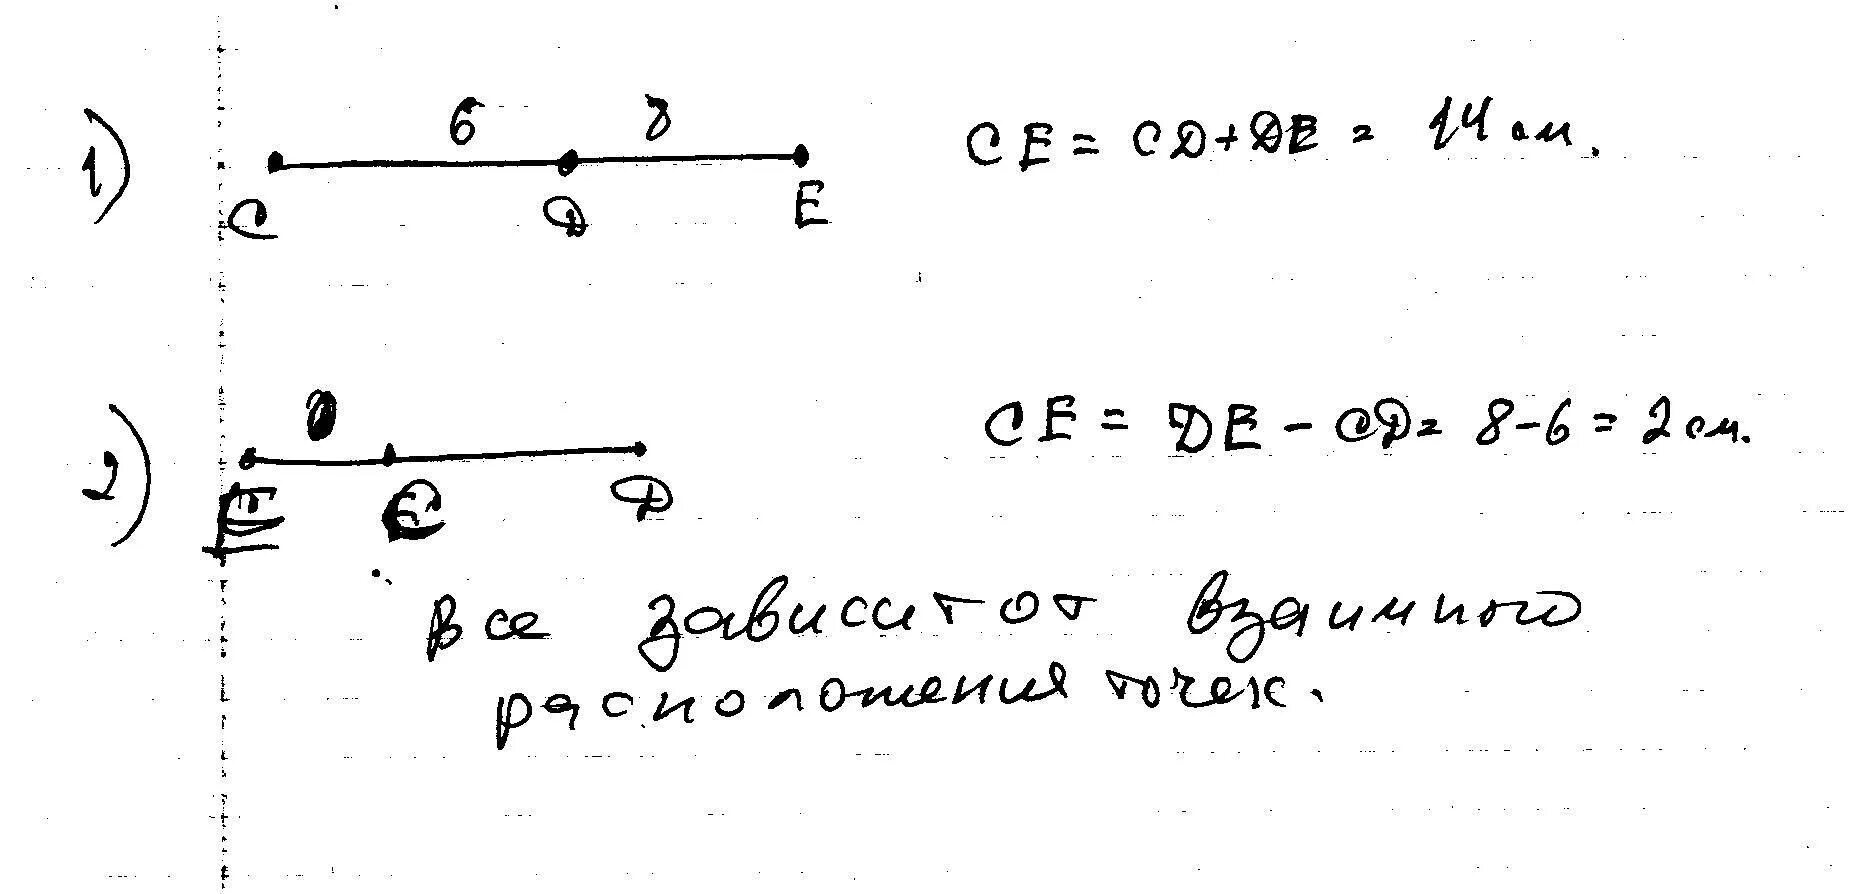 1) 6 8 CE = CD + DE = 14 см.
C D E
2) CE = DE - CD = 8 - 6 = 2 см.
E C D
Все зависит от взаимного
расположения точек.